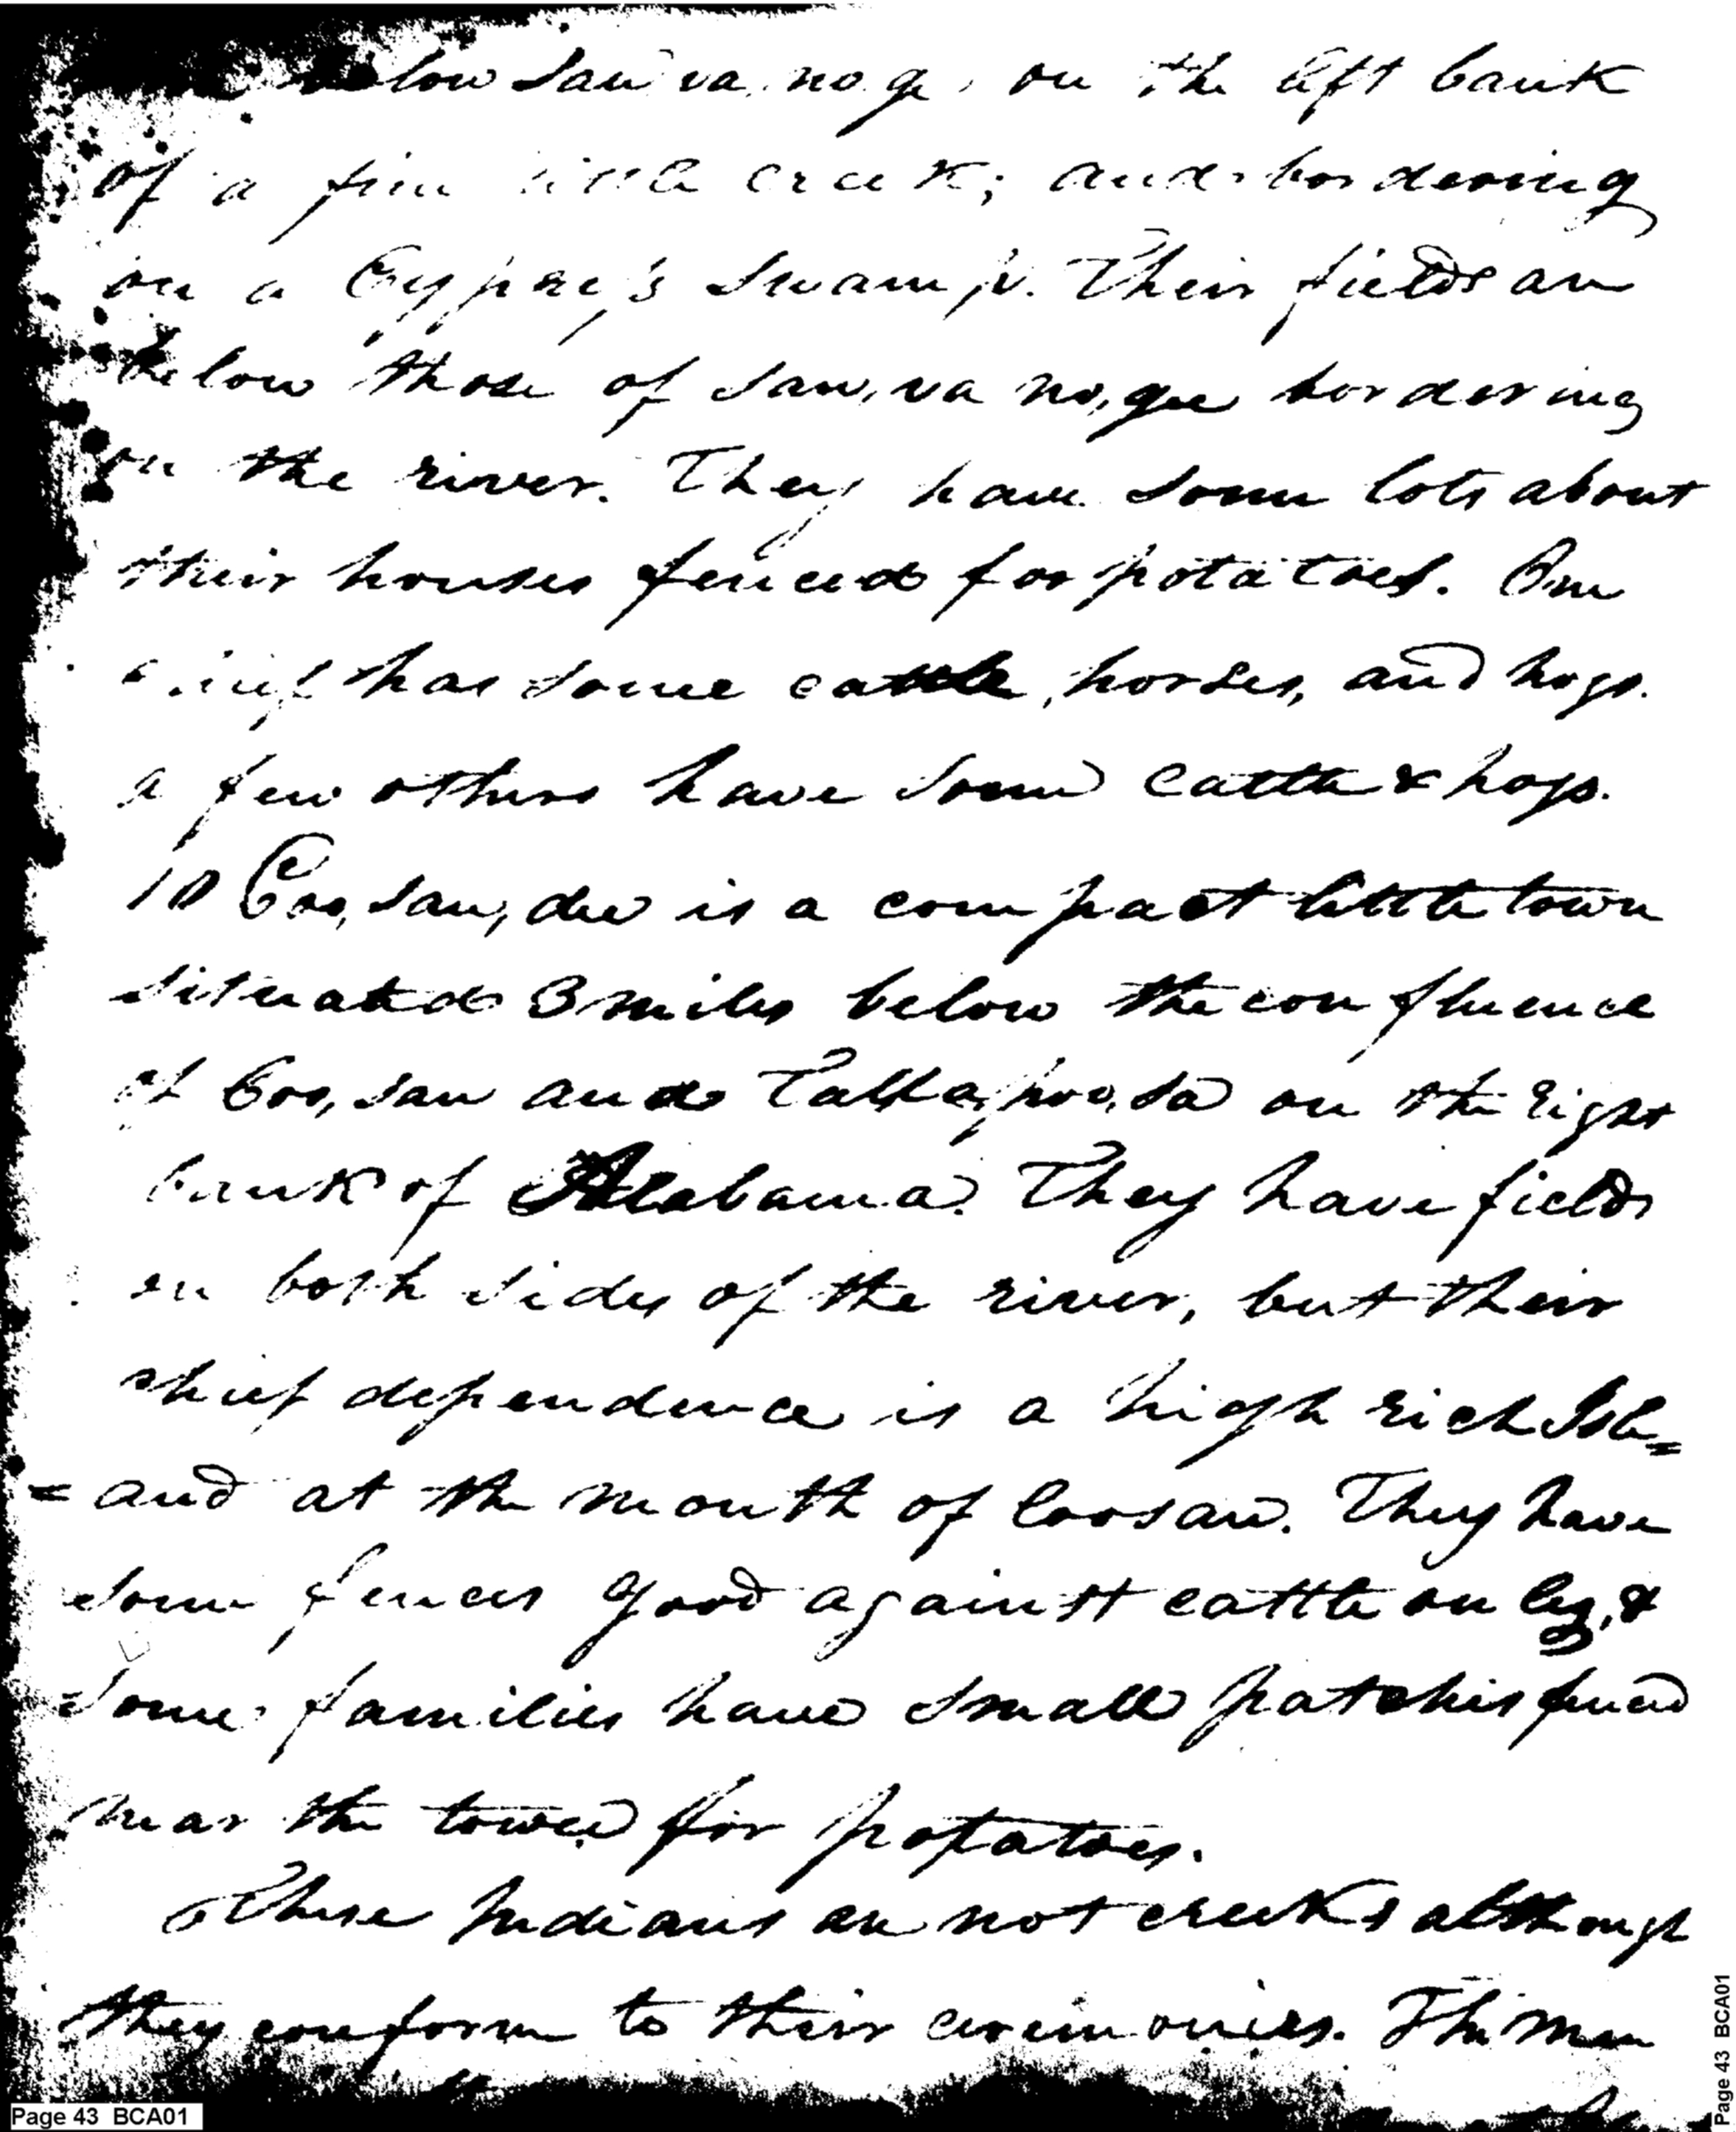 below Sau va, no, ge, on the left bank
of a fine little creek; and bordering
on a Cypress Swamp. Their fields are
below those of Sau, va no, gee bordering
on the river. They have some lots about
their houses fenced for potatoes. One
chief has some cattle, horses, and hogs.
a few others have some cattle & hogs.
10 Coo, sau, dee is a compact little town
situated 3 miles below the confluence
of Coo, sau and Tallapoo, sa on the right
bank of Alabama. They have fields
on both sides of the river, but their
chief dependence is a high rich Isl=
=and at the mouth of Coosau. They have
some fences good against cattle only, &
some families have small patches fenced
near the town for potatoes.
These Indians are not creeks although
they conform to their ceremonies. The men
Page 43 BCA01
Page 43 BCA01